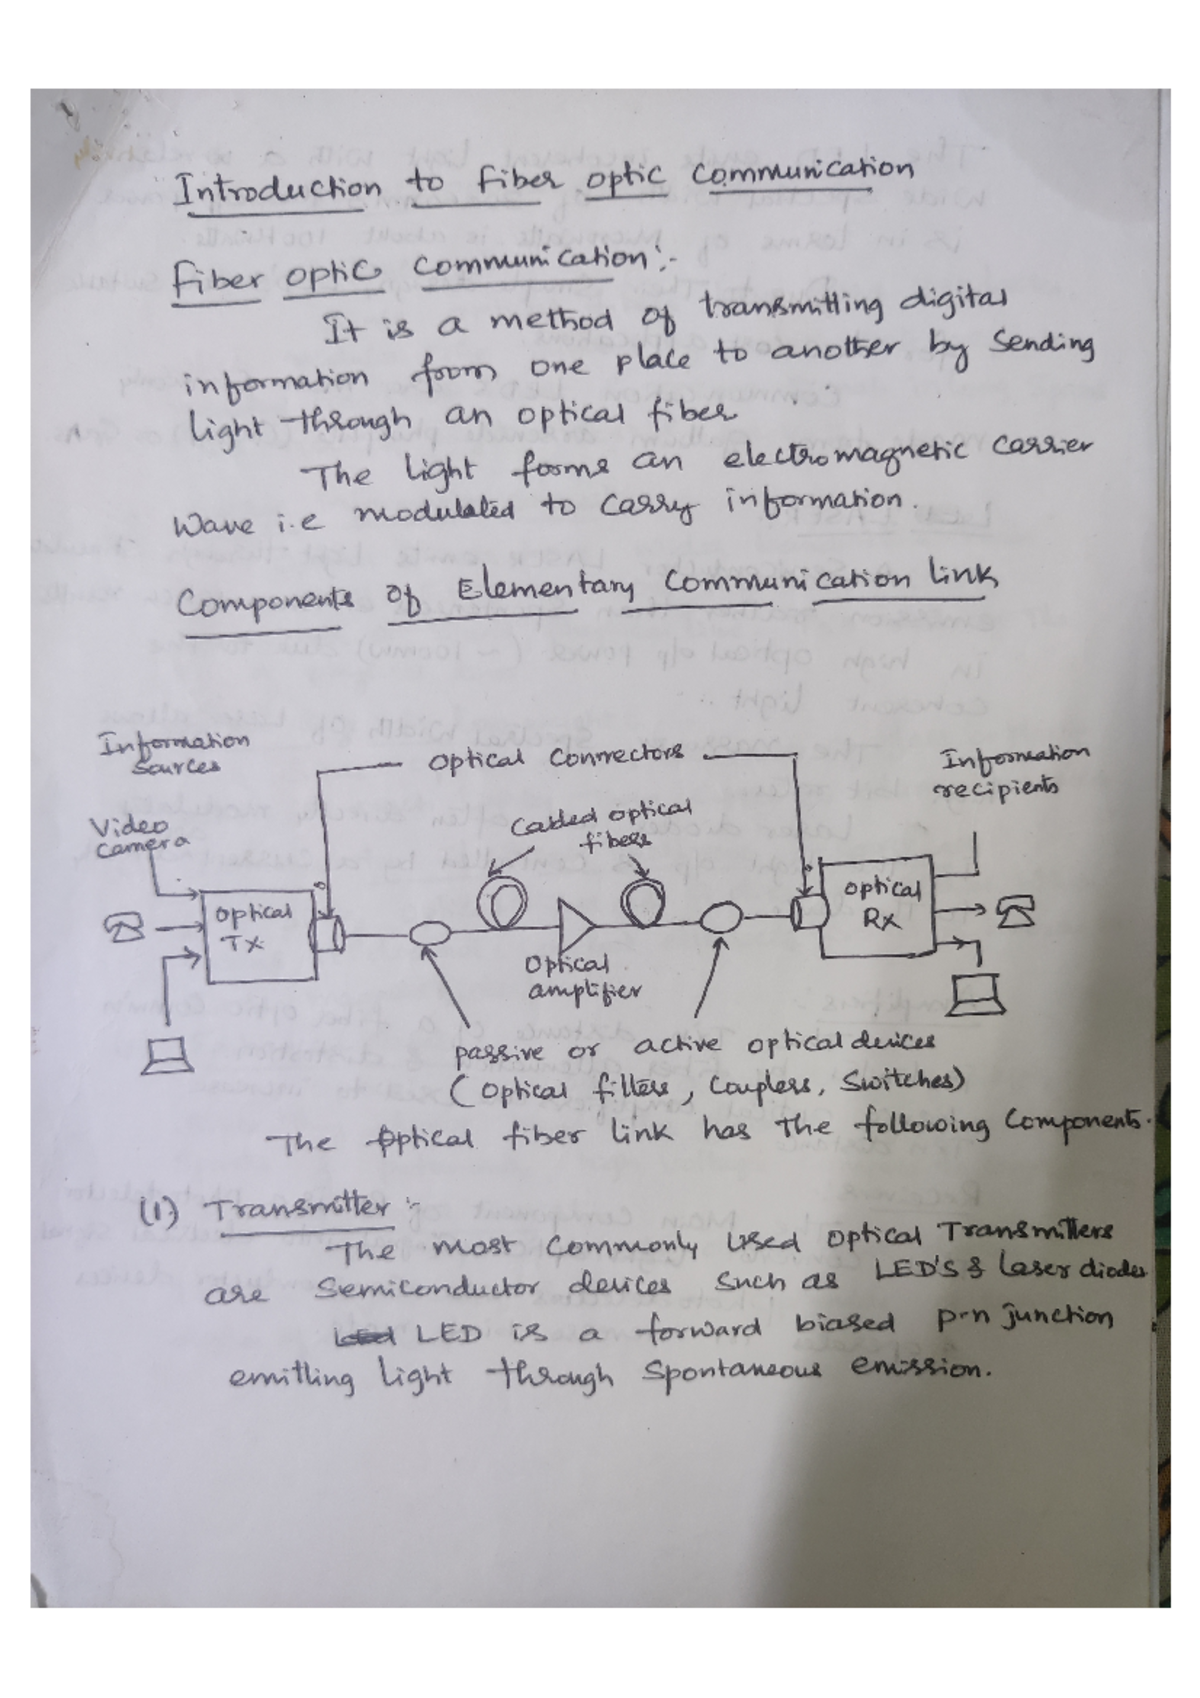 Introduction to Fiber optic Communication
Fiber optic Communication:-
It is a method of transmitting digital
information from one place to another by Sending
light through an optical fiber.
The light forms an electromagnetic Carrier
Wave i.e modulated to Carry information.
Components of Elementary Communication link
Information
Sources
Optical Connectors
Information
recipients
Video
Camera
Cabled optical
fibers
Optical
TX
Optical
RX
Optical
amplifier
passive or active optical devices
(Optical filters, Couplers, Switches)
The Optical fiber link has the following Components.
(1) Transmitter :-
The most Commonly Used Optical Transmitters
are Semiconductor devices Such as LED'S & Laser diodes
LED is a forward biased p-n junction
emitting light through Spontaneous emission.